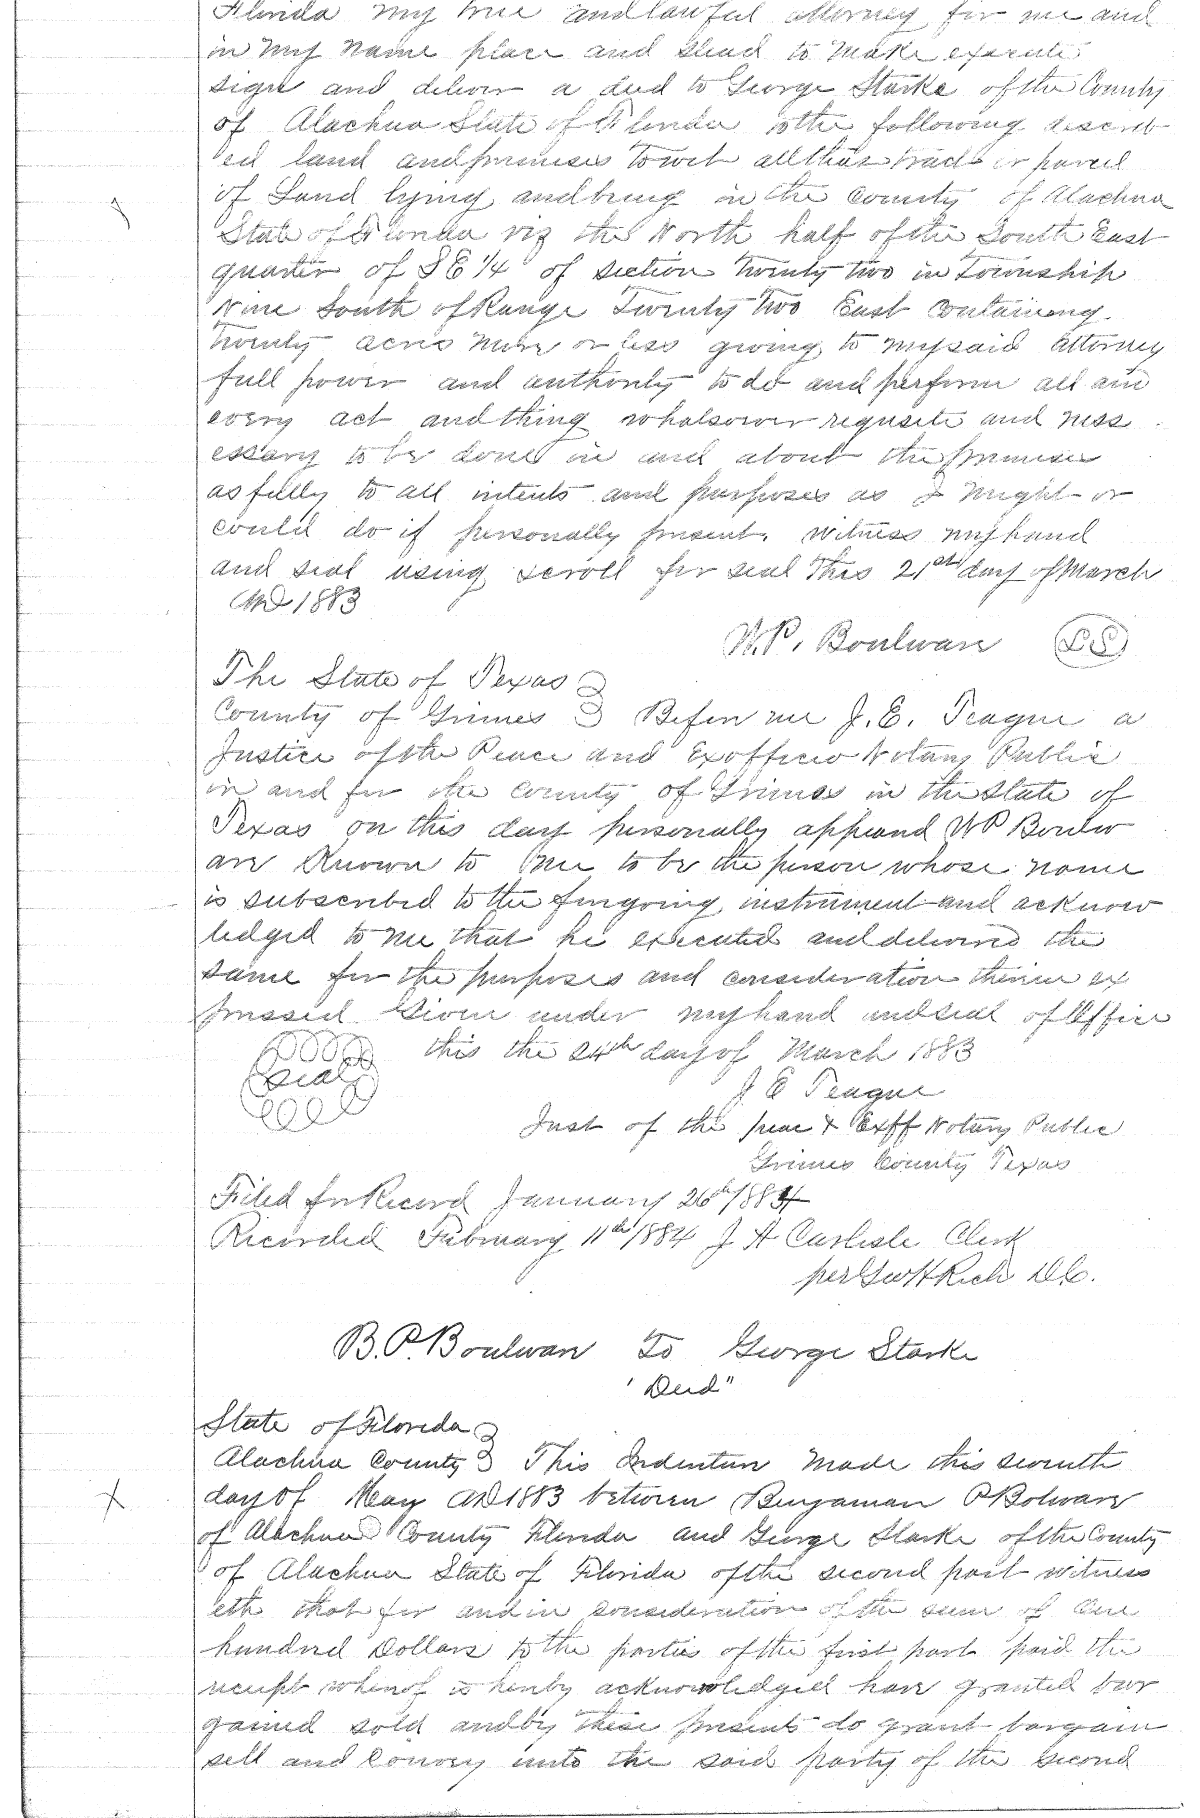 Florida my true and lawful attorney for me and
in my name place and stead to make execute
sign and deliver a deed to George Starke of the County
of Alachua State of Florida to the following describ
ed land and premises towit all that tract or parcel
of Land lying and being in the County of Alachua
State of Florida viz the North half of the South East
quarter of S E 1/4 of section twenty two in Township
Nine South of Range Twenty Two East Containing
Twenty acres more or less giving to my said attorney
full power and authority to do and perform all and
every act and thing whatsoever requsite and ness
essary to be done in and about the premises
as fully to all intents and purposes as I might or
could do if personally present. witness my hand
and seal using scroll for seal This 21st day of March
AD 1883
W. P. Boulware LS
The State of Texas
County of Grimes Before me J. E. Teague a
Justice of the Peace and Exofficio Notary Public
in and for the County of Grimes in the State of
Texas on this day personally appeard W P Boulw
are Known to me to be the person whose name
is subscribed to the foregoing instrument and acknow
ledged to me that he executed and delivered the
same for the purposes and consideration therein ex
pressed Given under my hand and seal of Office
seal this the 24th day of March 1883
J E Teague
Just of the peace & Exoff Notary Public
Grimes County Texas
Filed for Record January 26th 1884
Recorded February 11th 1884 J A Carlisle Clerk
per Geo H Rich D.C.
B. P. Boulware To George Starke
"Deed"
State of Florida
Alachua County This Indenture Made this seventh
day of May AD 1883 between Benjaman P Bolware
of Alachua County Florida and George Starke of the County
of Alachua State of Florida of the second part witness
eth that for and in consideration of the sum of One
hundred Dollars to the parties of the first part paid the
receipt whereof is hereby acknowledged have granted bar
gained sold and by these presents do grant bargain
sell and Convey unto the said party of the second